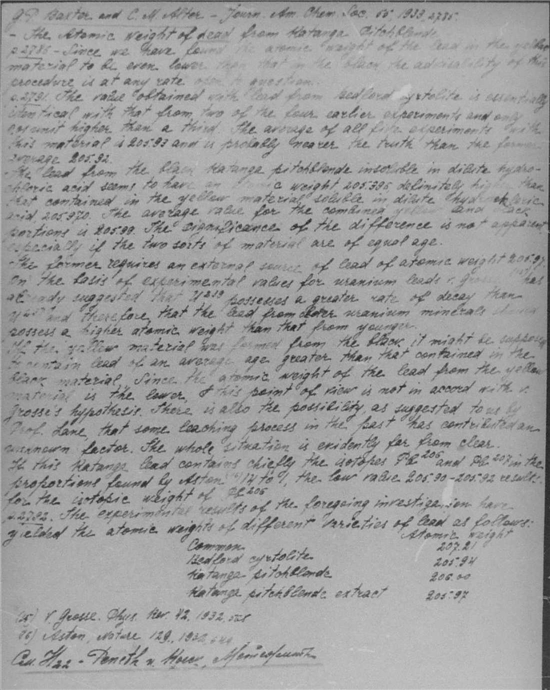 G P Baxter and C. M Alter - Journ. Am. Chem. Soc. 55. 1933, 2785.
- The Atomic Weight of Lead from Katanga Pitchblende
p.2785 - Since we have found the atomic weight of the lead in the yellow
material to be even lower than that in the black the advisability of this
procedure is at any rate open to question.
p.2791. The value obtained with lead from Bedford cyrtolite is essentially
identical with that from two of the four earlier experiments and only
one unit higher than a third. The average of all five experiments with
this material is 205.93 and is probably nearer the truth than the former
average 205.92.
- The lead from the black Katanga pitchblende insoluble in dilute hydro-
chloric acid seems to have an atomic weight definitely higher than
that contained in the yellow material soluble in dilute hydrochloric
acid 205.970. The average value for the combined yellow and black
portions is 205.99. The significance of the difference is not apparent
especially if the two sorts of material are of equal age.
- the former requires an external source of lead of atomic weight
On the basis of experimental values for uranium leads v. Grosse has
already suggested that possesses a greater rate of decay than
and therefore, that the lead from older uranium minerals should
possess a higher atomic weight than that from younger.
If the yellow material was formed from the black, it might be supposed
to contain lead of an average age greater than that contained in the
black material. Since the atomic weight of the lead from the yellow
material is the lower, this point of view is not in accord with v.
Grosse's hypothesis. There is also the possibility, as suggested to us by
Prof. Lane, that some leaching process in the past has contributed an
unknown factor. The whole situation is evidently far from clear.
If this Katanga lead contains chiefly the isotopes Pb 206 and Pb 207 in the
proportions found by Aston the low value 205.90-205.92 results
for the isotopic weight of Pb 206.
p.2792. The experimental results of the foregoing investigation have
yielded the atomic weights of different varieties of lead as follows:
Atomic weight
Common 207.21
Bedford cyrtolite 205.94
Katanga pitchblende 206.00
Katanga pitchblende extract 205.97
v. Grosse. Phys. Rev. 42, 1932,
Aston, Nature 129, 1932,